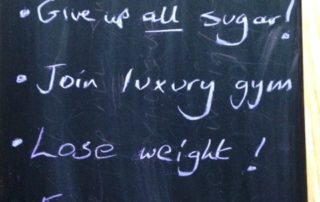 • Give up all sugar!
• Join luxury gym
• Lose weight !